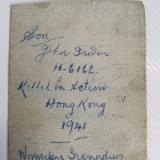 Son
John Irwin
H-6162
Killed in Action
Hong Kong
1941
Winnipeg Grenadiers